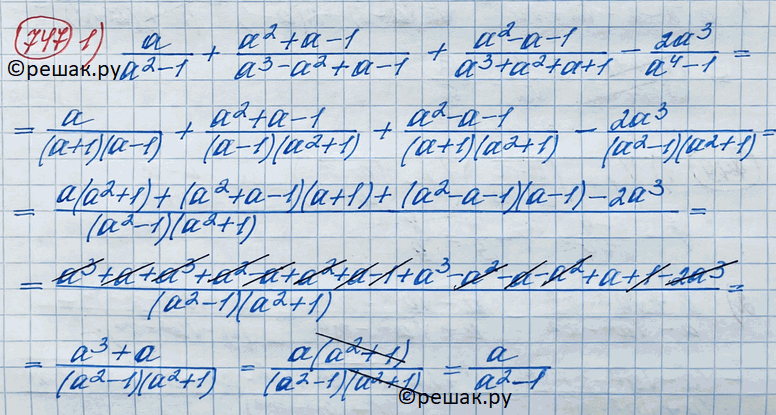 747 1) a/(a²-1) + (a²+a-1)/(a³-a²+a-1) + (a²-a-1)/(a³+a²+a+1) - 2a³/(a⁴-1) =
©решак.ру
= a/((a+1)(a-1)) + (a²+a-1)/((a-1)(a²+1)) + (a²-a-1)/((a+1)(a²+1)) - 2a³/((a²-1)(a²+1)) =
= (a(a²+1) + (a²+a-1)(a+1) + (a²-a-1)(a-1) - 2a³)/((a²-1)(a²+1)) =
= (a³+a+a³+a²-a+a²+a-1+a³-a²-a-a²+a+1-2a³)/((a²-1)(a²+1)) =
= (a³+a)/((a²-1)(a²+1)) = a(a²+1)/((a²-1)(a²+1)) = a/(a²-1)
©решак.ру